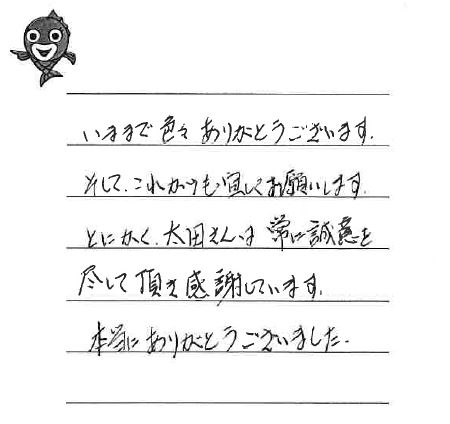 いままで色々ありがとうございます.
そして、これからも宜しくお願いします.
とにかく、太田さんは常に誠意を
尽して頂き感謝しています.
本当にありがとうございました.